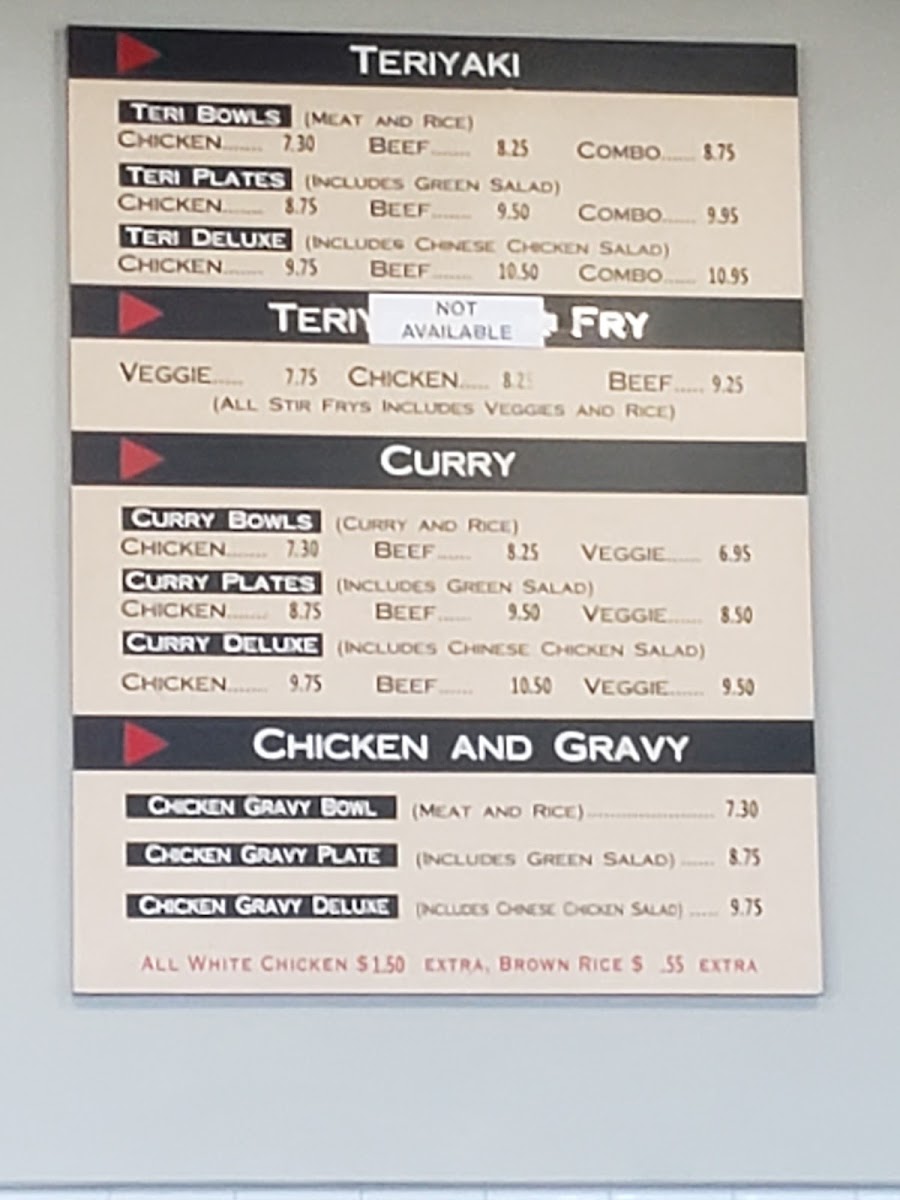 TERIYAKI
TERI BOWLS (MEAT AND RICE)
CHICKEN....... 7.30 BEEF....... 8.25 COMBO...... 8.75
TERI PLATES (INCLUDES GREEN SALAD)
CHICKEN....... 8.75 BEEF....... 9.50 COMBO...... 9.95
TERI DELUXE (INCLUDES CHINESE CHICKEN SALAD)
CHICKEN....... 9.75 BEEF....... 10.50 COMBO...... 10.95
NOT
AVAILABLE
TERIY FRY
VEGGIE..... 7.75 CHICKEN..... BEEF..... 9.25
(ALL STIR FRYS INCLUDES VEGGIES AND RICE)
CURRY
CURRY BOWLS (CURRY AND RICE)
CHICKEN....... 7.30 BEEF...... 8.25 VEGGIE...... 6.95
CURRY PLATES (INCLUDES GREEN SALAD)
CHICKEN....... 8.75 BEEF...... 9.50 VEGGIE...... 8.50
CURRY DELUXE (INCLUDES CHINESE CHICKEN SALAD)
CHICKEN....... 9.75 BEEF...... 10.50 VEGGIE...... 9.50
CHICKEN AND GRAVY
CHICKEN GRAVY BOWL (MEAT AND RICE)........................ 7.30
CHICKEN GRAVY PLATE (INCLUDES GREEN SALAD) ...... 8.75
CHICKEN GRAVY DELUXE (INCLUDES CHINESE CHICKEN SALAD) ..... 9.75
ALL WHITE CHICKEN $1.50 EXTRA, BROWN RICE $ .55 EXTRA